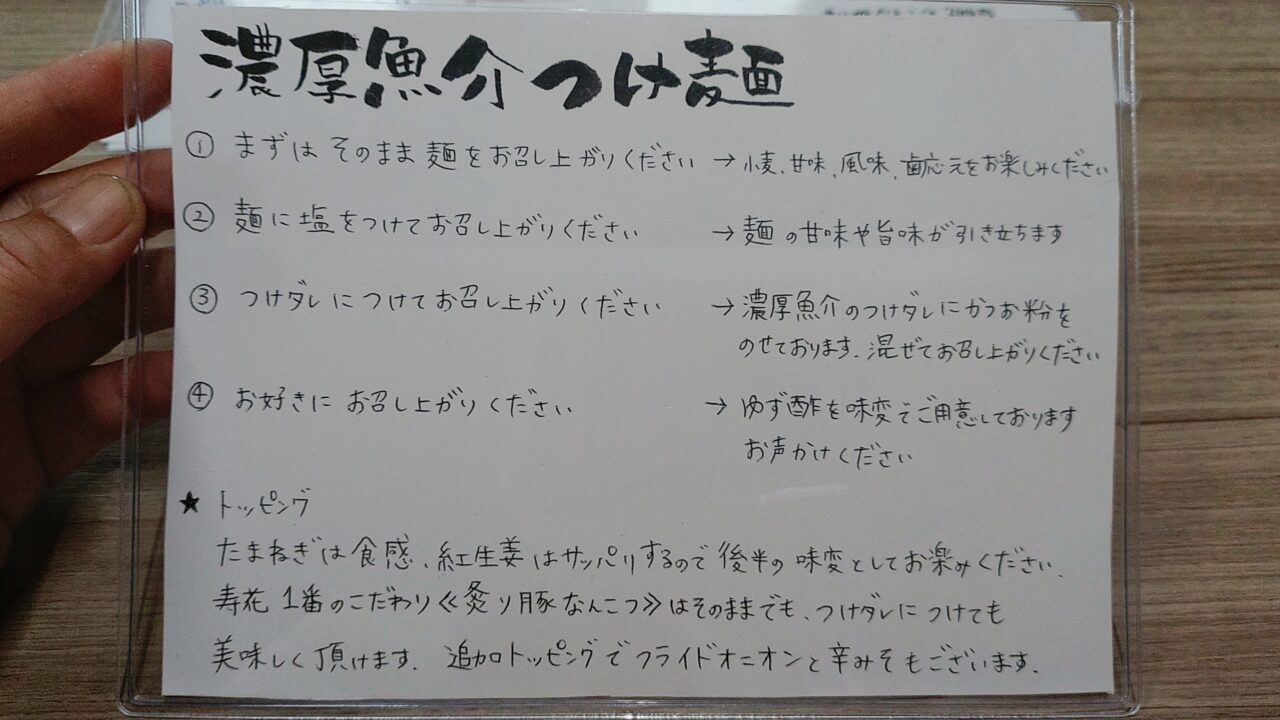 濃厚魚介つけ麺
① まずは そのまま 麺をお召し上がりください → 小麦、甘味、風味、歯応えをお楽しみください
② 麺に塩をつけてお召し上がりください → 麺の甘味や旨味が引き立ちます
③ つけダレにつけてお召し上がりください → 濃厚魚介のつけダレにかつお粉を
のせております。混ぜてお召し上がりください
④ お好きに お召し上がりください → ゆず酢を味変でご用意しております
お声かけください
★ トッピング
たまねぎは食感、紅生姜はサッパリするので後半の味変としてお楽みください。
寿花1番のこだわり≪炙り豚なんこつ≫はそのままでも、つけダレにつけても
美味しく頂けます。 追加トッピングでフライドオニオンと辛みそもございます。